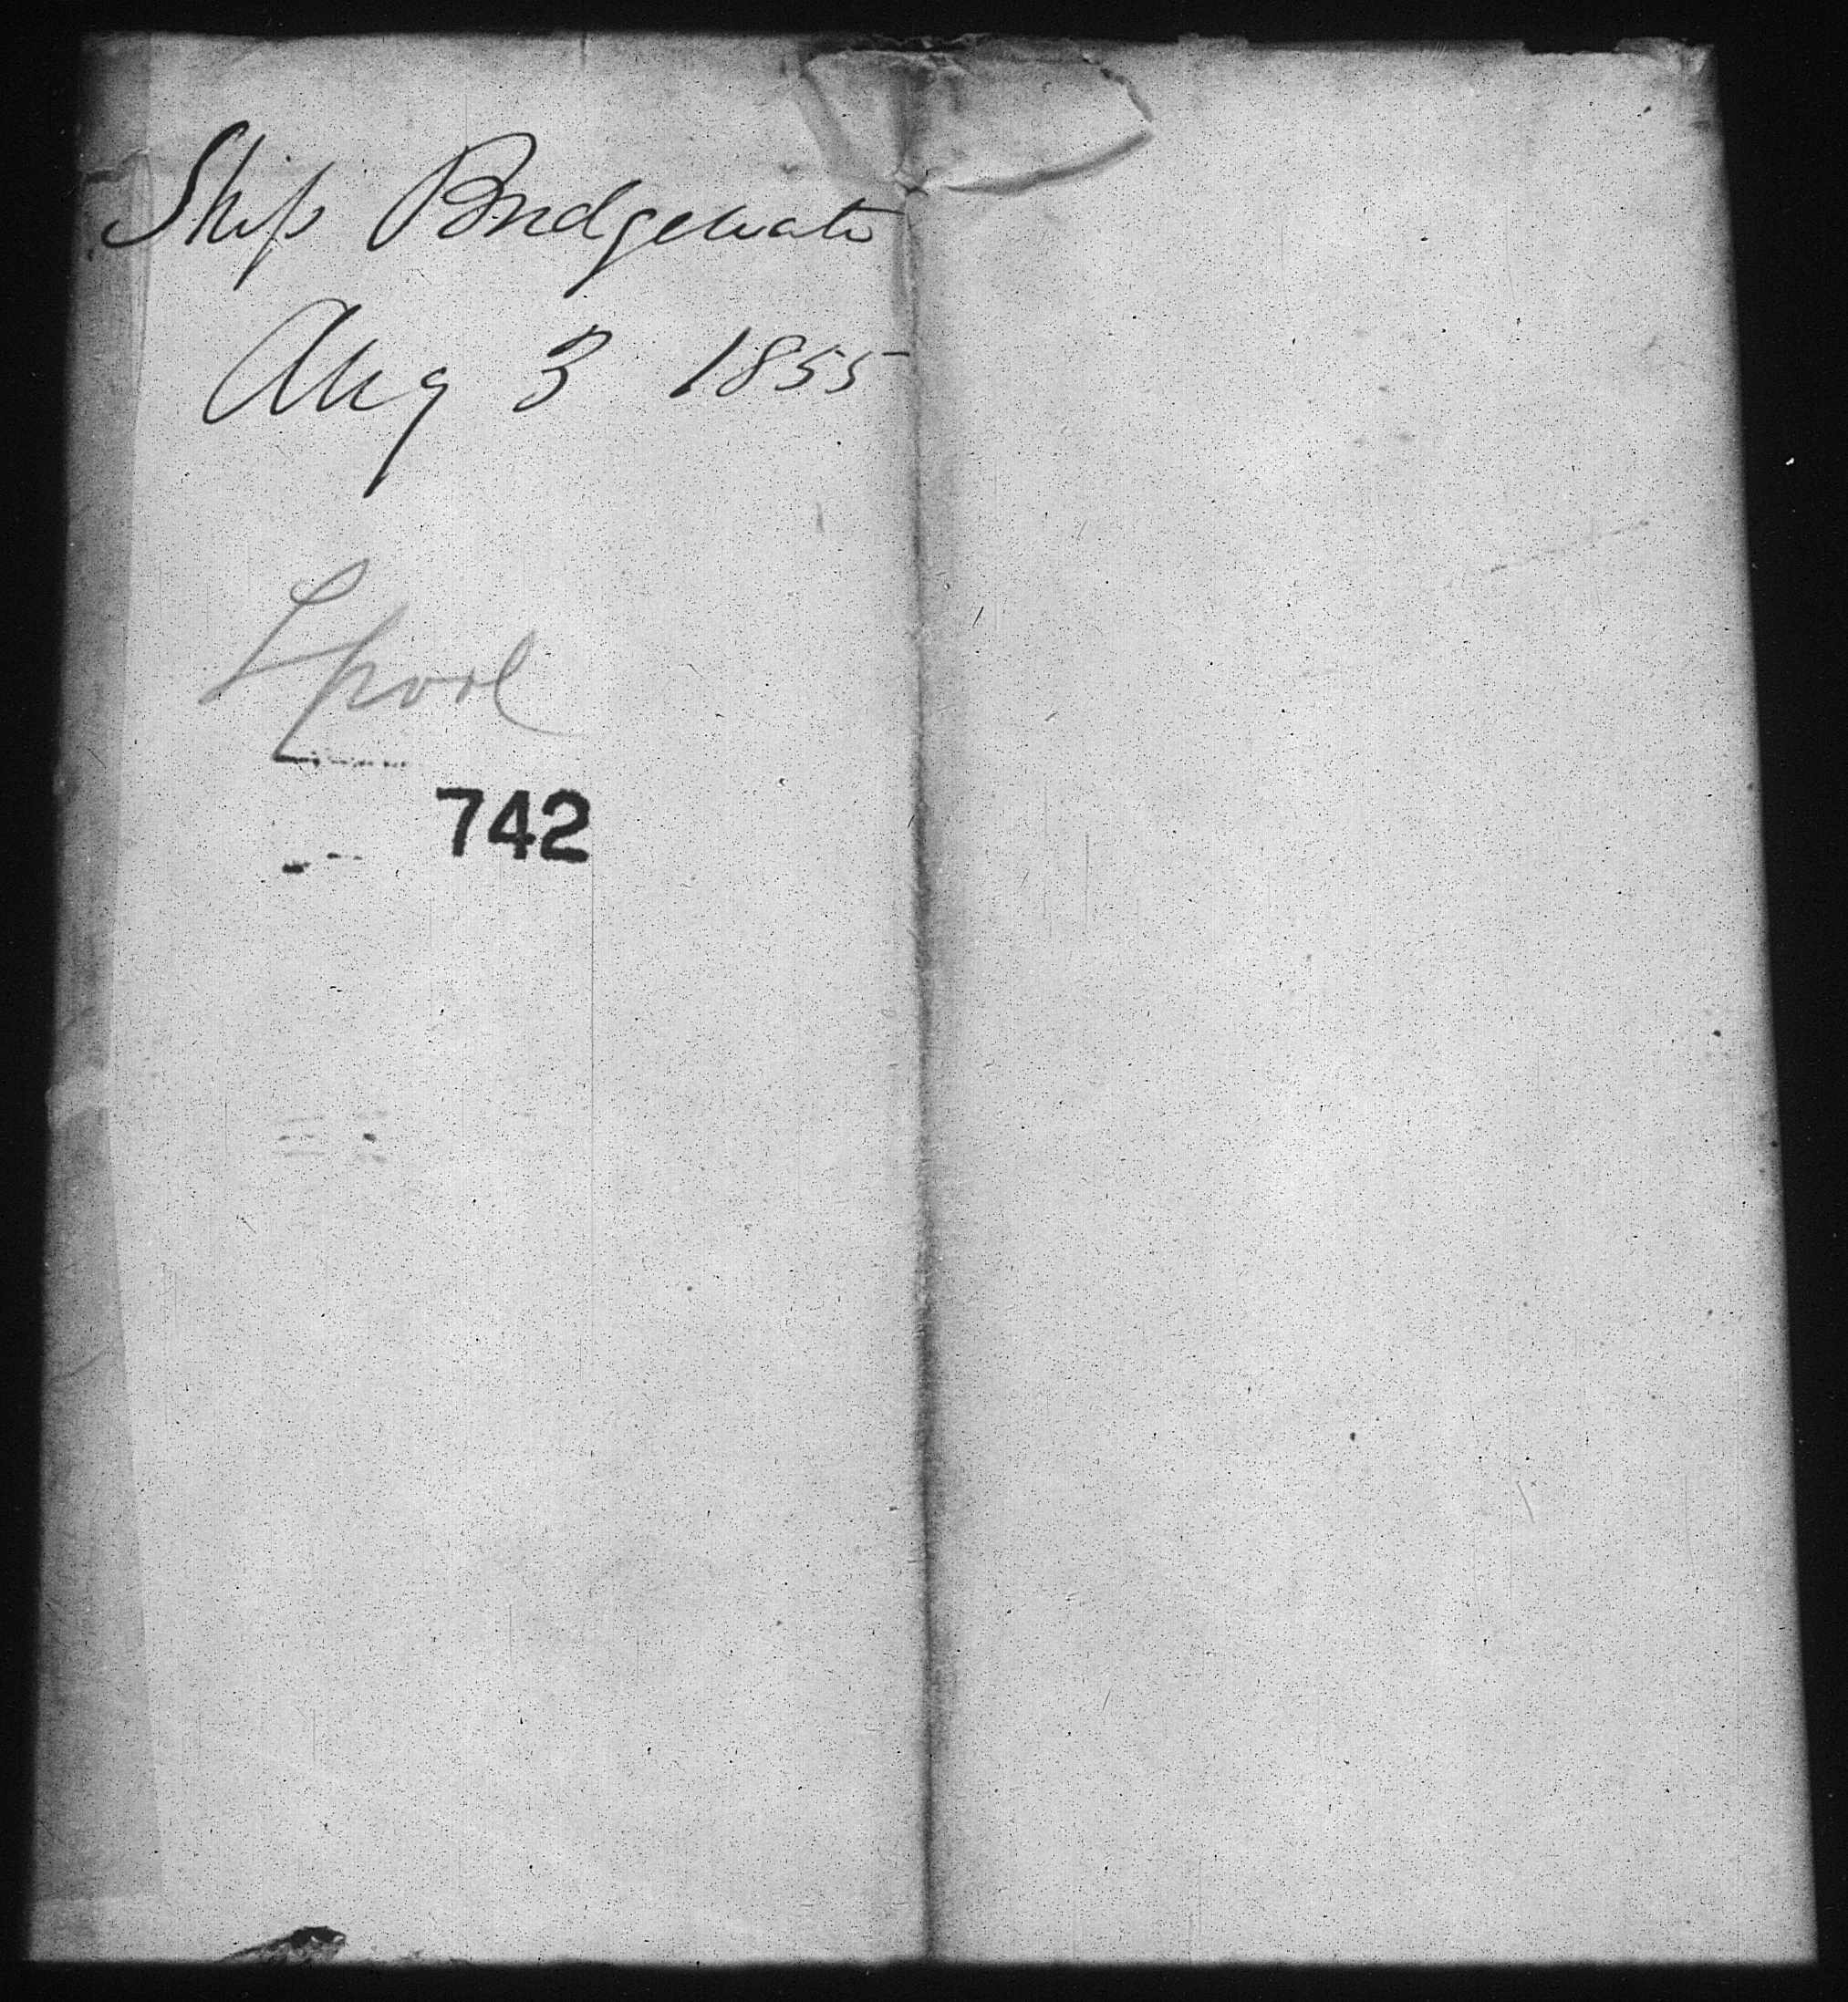 Ship Bridgewater
Aug 3 1855
Lpool
742